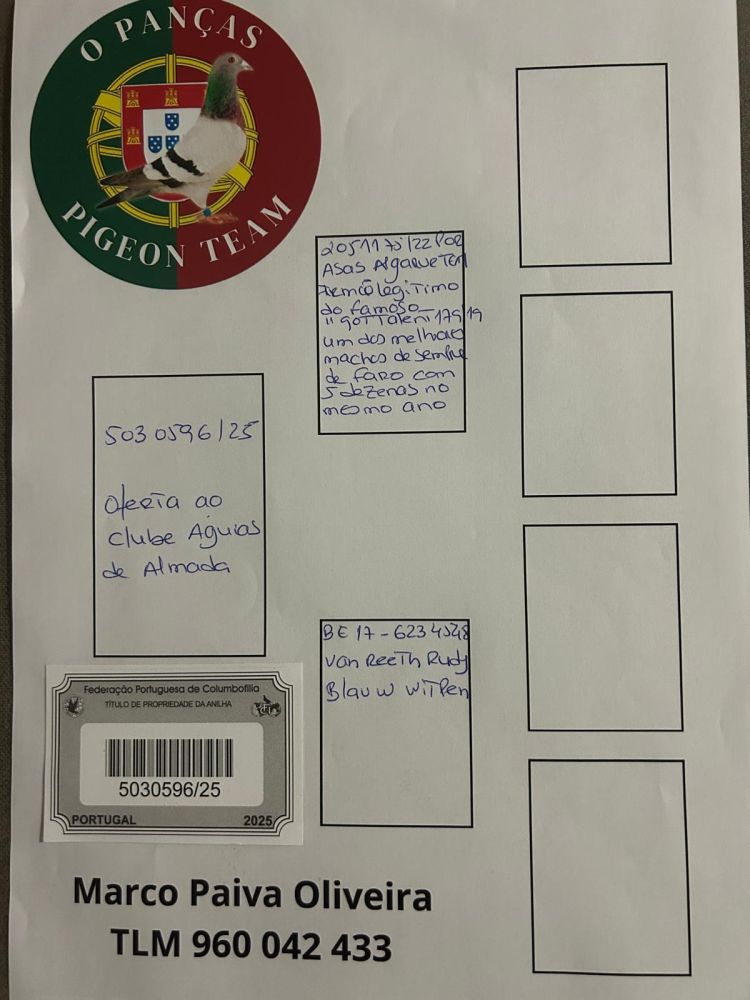 O PANÇAS
PIGEON TEAM
5030596/25
Oferta ao
clube Aguias
de Almada
Por
Asas Algarve Tem
legitimo
do famoso
"gottalent 179/19
um dos melhores
machos de sempre
de faro com
5 dezenas no
mesmo ano
BE 17-6234548
Van Reeth Rudy
Blauw witpen
Federação Portuguesa de Columbofilia
TÍTULO DE PROPRIEDADE DA ANILHA
5030596/25
PORTUGAL 2025
Marco Paiva Oliveira
TLM 960 042 433